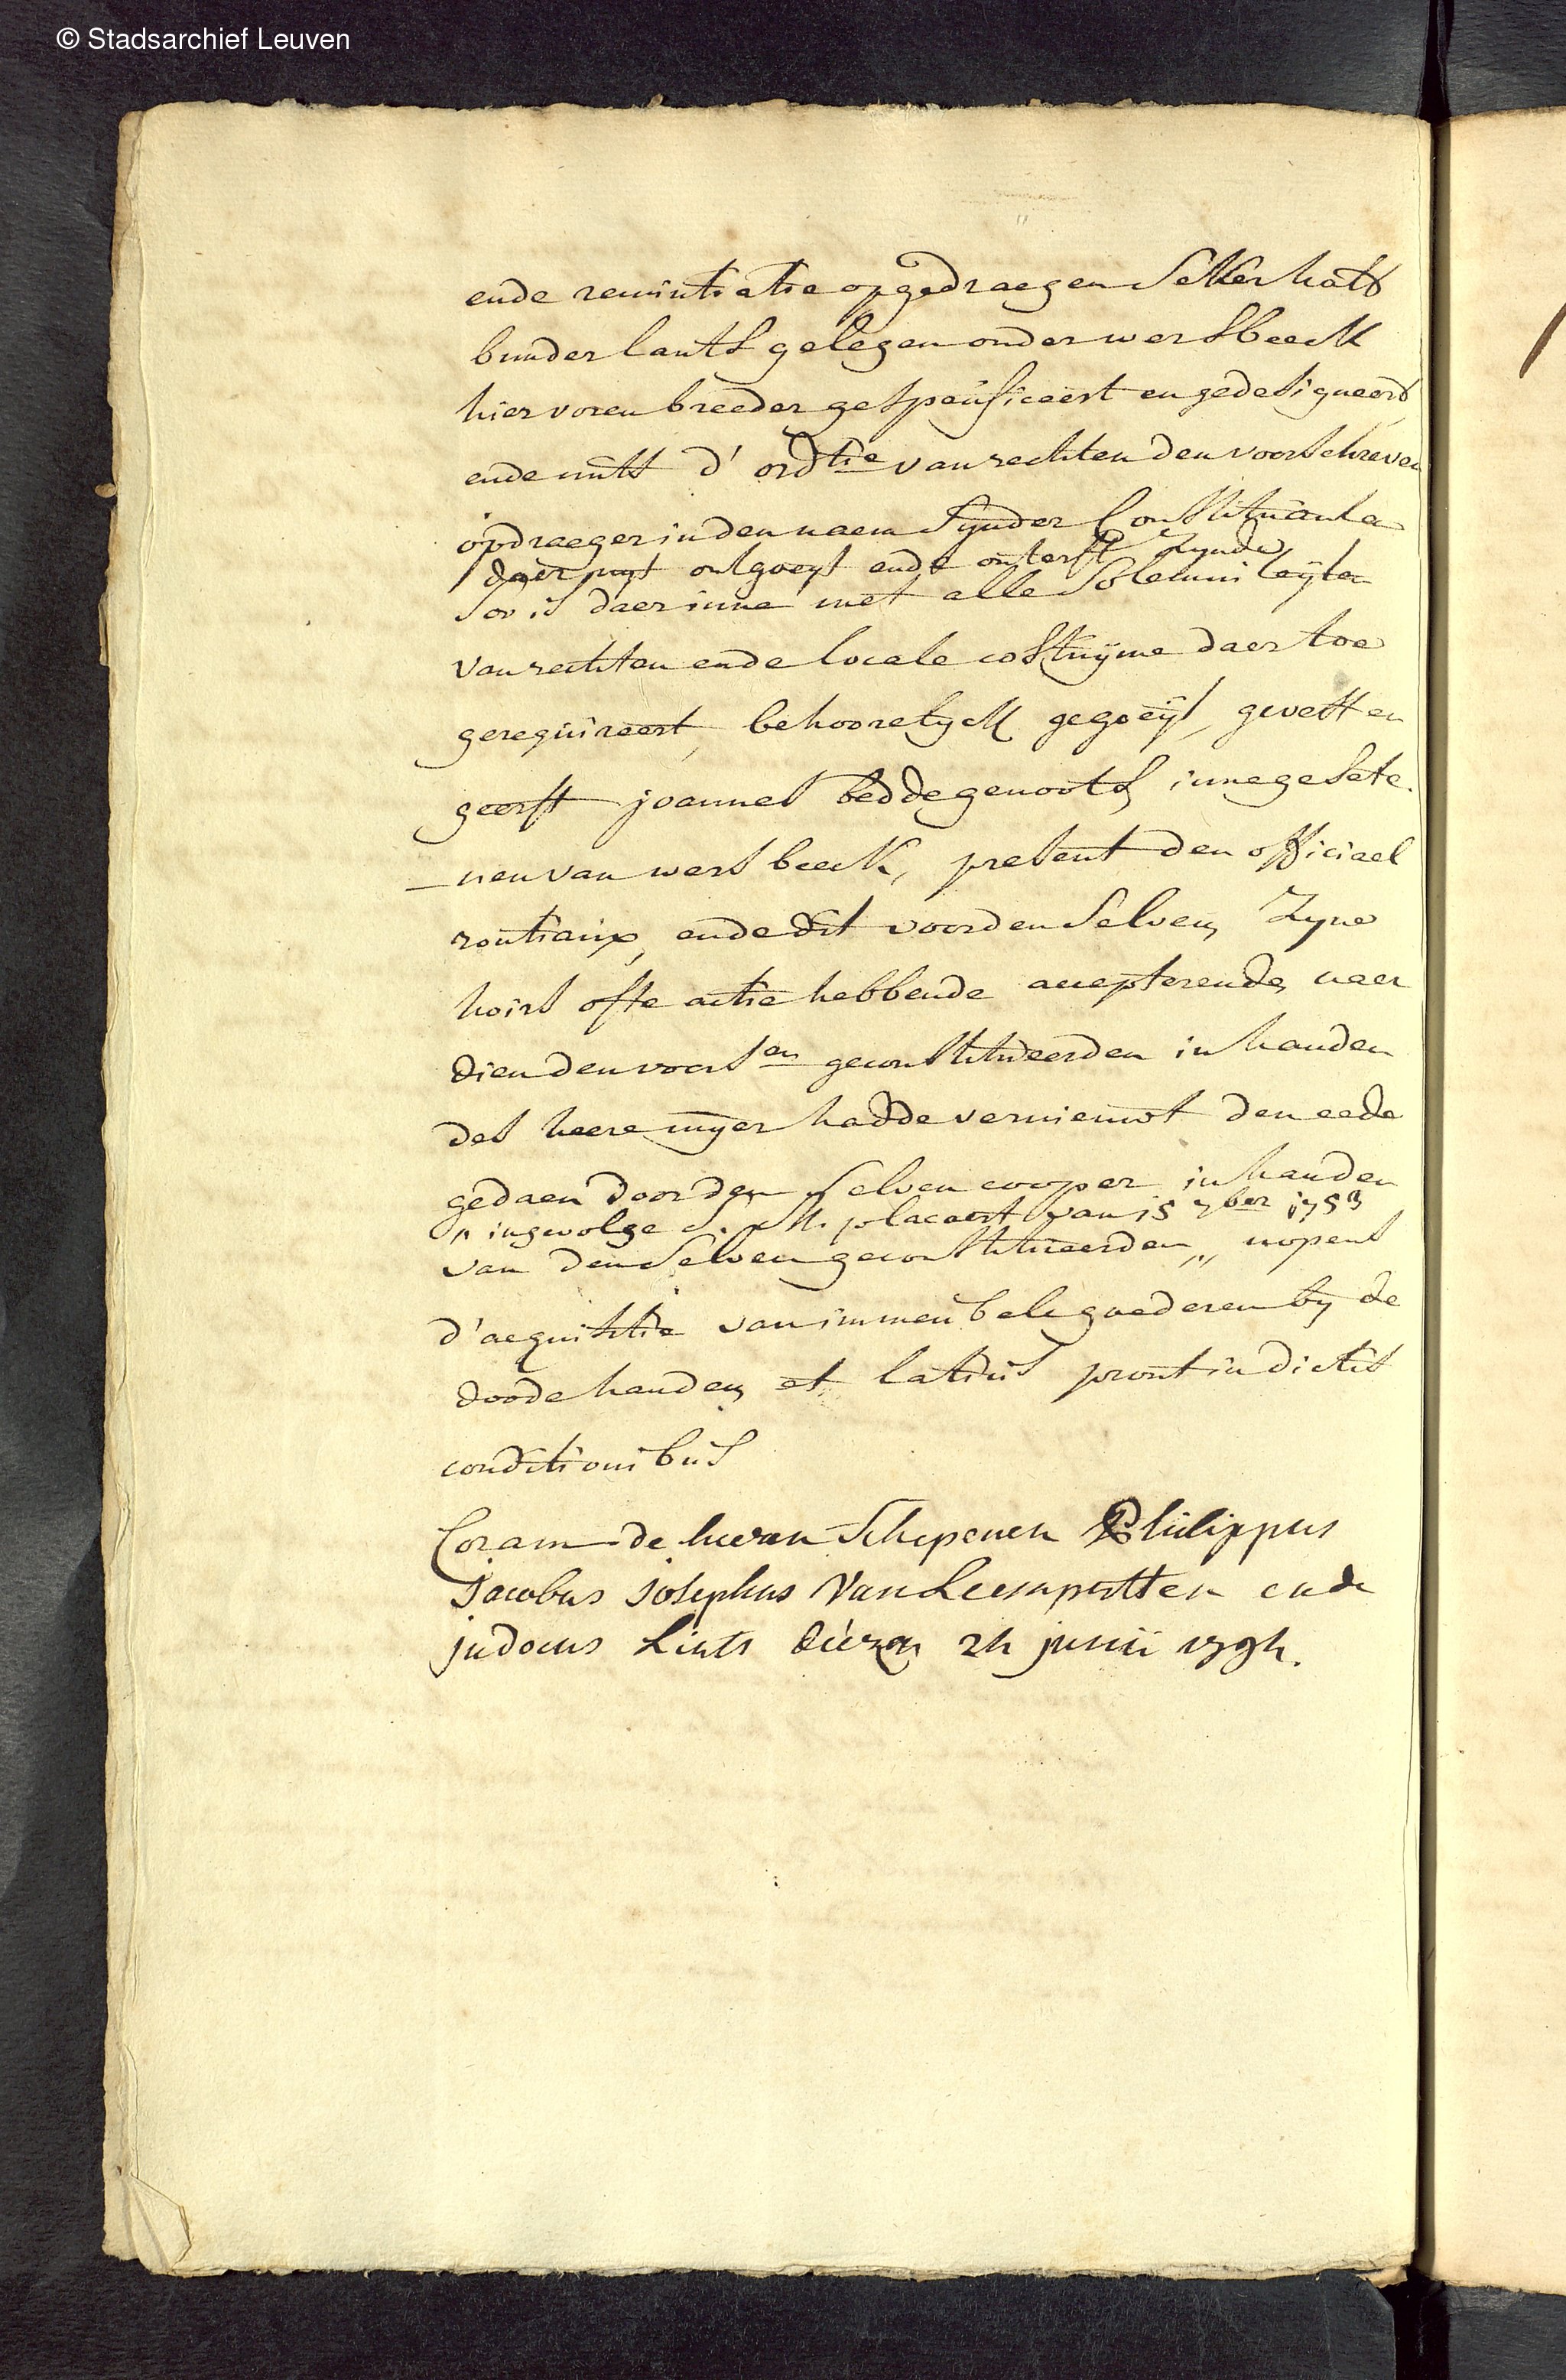 © Stadsarchief Leuven
ende renuntiatie opgedraegen seker half
bunder lants gelegen onder wersbeeck
hier voren breeder gespecificeert en gedesigneerd
ende mits d' ordtie van rechten den voorschreven
opdraeger in den naem synder Constituante
daer uyt ontgoeyt ende onterft zynde
soo is daer inne met alle solemniteyten
van rechten ende locale costuyme daer toe
gerequireert, behoorelyck gegoeyt, gevest en
geerft joannes beddegenoots, innegesete.
_nen van wersbeeck, present den officiael
rontiaux, ende dit voor den selven, zyne
hoirs ofte actie hebbende accepterende, naer
dien den voorsen geconstitueerden in handen
des heere myer hadde vernieuwt den eede
gedaen door den selven cooper in handen
" ingevolge S. M. placaert van 15 7ber 1753
van den selven geconstitueerden " nopens
d'acquisitie van immeubele goederen by de
doode handen et latius prout in dictis
conditionibus
Coram de heeren Schepenen Philippus
Jacobus Josephus Van Leemputten ende
judocus Lints 24 junii 1794.